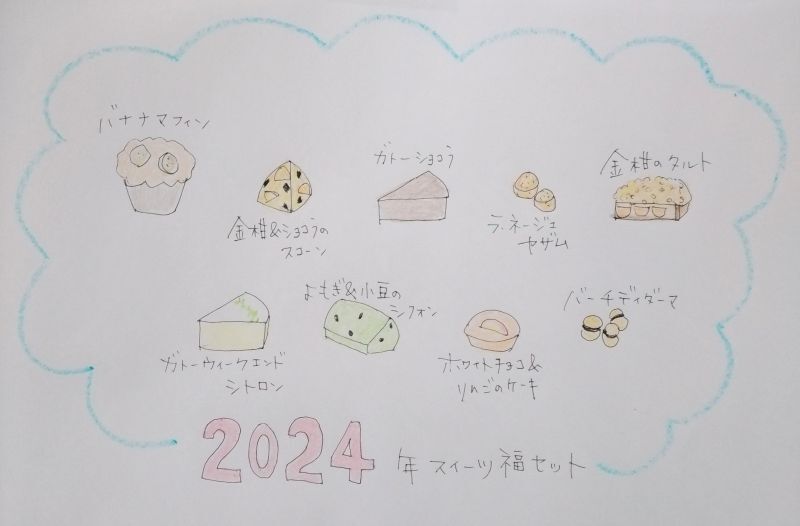 バナナマフィン
金柑&ショコラの
スコーン
ガトーショコラ
ラ・ネージュ
ヤザム
金柑のタルト
ガトーウィークエンド
シトロン
よもぎ&小豆の
シフォン
ホワイトチョコ&
りんごのケーキ
バーチディダーマ
2024年スイーツ福セット